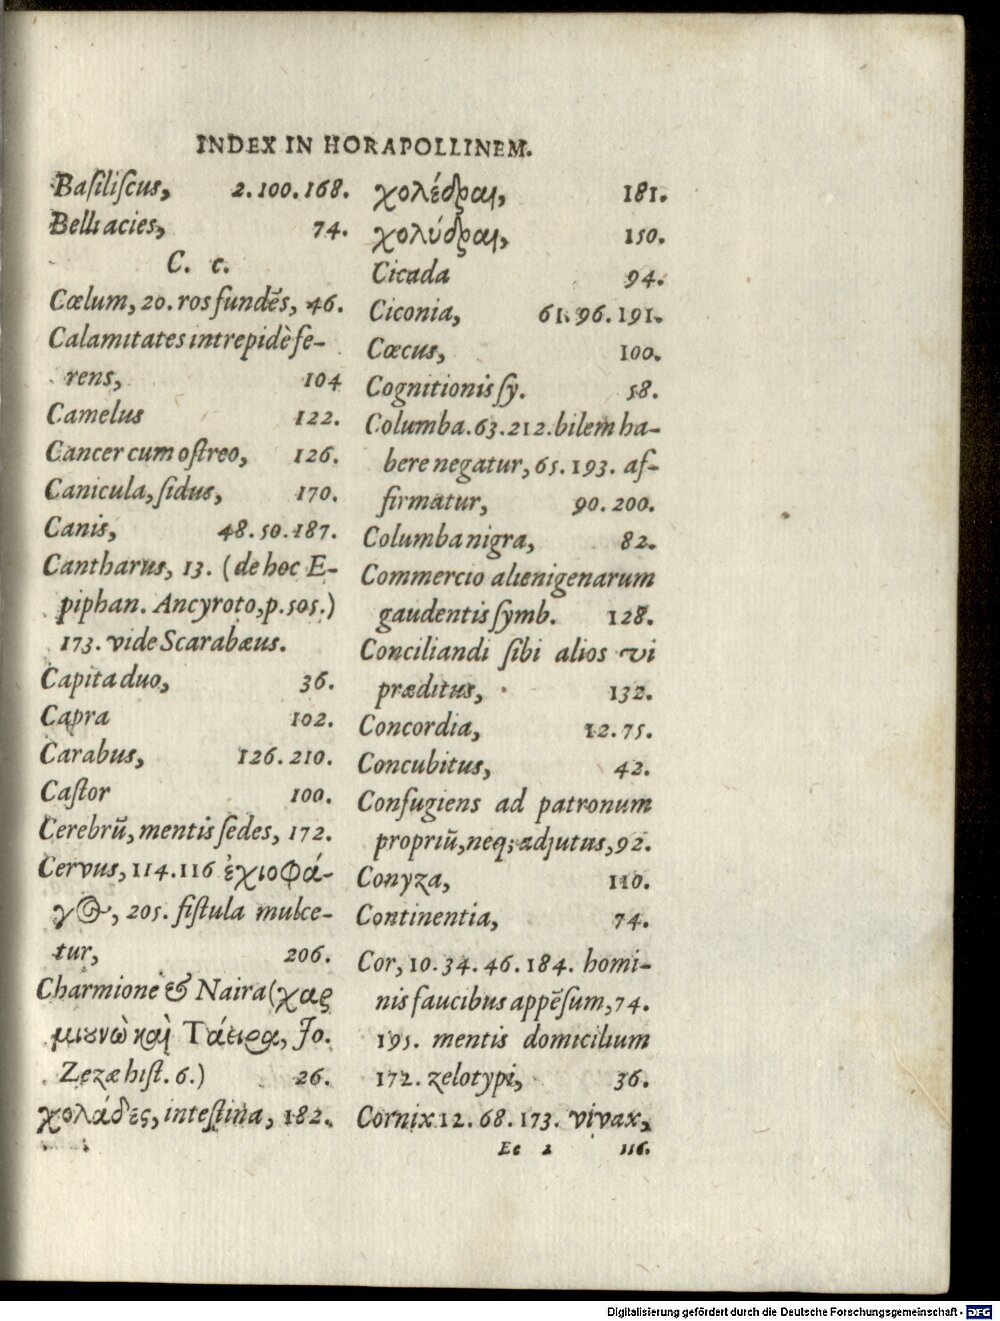 INDEX IN HORAPOLLINEM.
Baſiliſcus, 2.100.168.
Belli acies, 74.
C. c.
Cœlum, 20. ros fundẽs, 46.
Calamitates intrepidè fe-
rens, 104
Camelus 122.
Cancer cum oſtreo, 126.
Canicula, ſidus, 170.
Canis, 48.50.187.
Cantharus, 13. (de hoc E-
piphan. Ancyroto, p.505.)
173. vide Scarabæus.
Capita duo, 36.
Capra 102.
Carabus, 126.210.
Caſtor 100.
Cerebrũ, mentis ſedes, 172.
Cervus, 114.116 ἐχιοφά-
γος, 205. fiſtula mulce-
tur, 206.
Charmione & Naira (χαρ
μιουνὼ καὶ Τάειρα, Jo.
Zezæ hiſt. 6.) 26.
χολάδες, inteſtina, 182.
χολέδραι, 181.
χολύδραι, 150.
Cicada 94.
Ciconia, 61.96.191.
Cœcus, 100.
Cognitionis ſy. 58.
Columba. 63.212. bilem ha-
bere negatur, 65.193. af-
firmatur, 90.200.
Columba nigra, 82.
Commercio alienigenarum
gaudentis ſymb. 128.
Conciliandi ſibi alios vi
præditus, 132.
Concordia, 12.75.
Concubitus, 42.
Confugiens ad patronum
propriũ, neq; adjutus, 92.
Conyza, 110.
Continentia, 74.
Cor, 10.34.46.184. homi-
nis faucibus appẽſum, 74.
195. mentis domicilium
172. zelotypi, 36.
Cornix 12.68.173. vivax,
Ee 2 116.
Digitalisierung gefördert durch die Deutsche Forschungsgemeinschaft - DFG